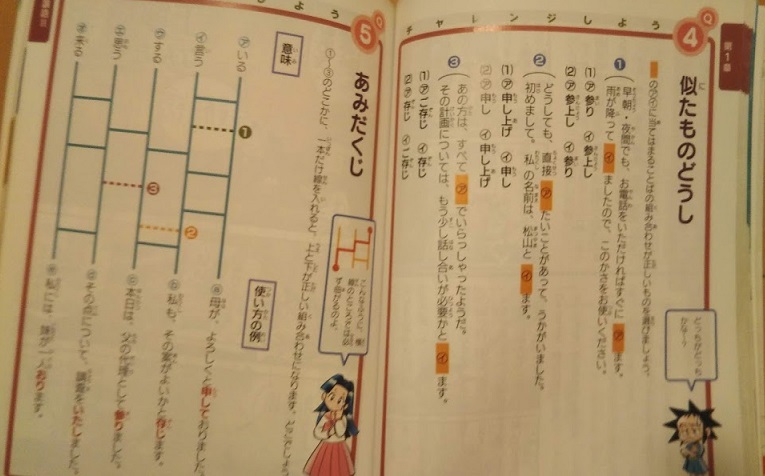 第1章
チャレンジしよう
Q4
似たものどうし
のア、イに当てはまることばの組み合わせが正しいものを選びましょう。
どっちがどっちかな〜?
① 早朝・夜間でも、お電話をいただければすぐに ア ます。
雨が降って イ ましたので、このかさをお使いください。
(1) ア 参り イ 参上し
(2) ア 参上し イ 参り
② どうしても、直接 ア たいことがあって、うかがいました。
初めまして。私の名前は、松山と イ ます。
(1) ア 申し イ 申し上げ
(2) ア 申し上げ イ 申し
③ あの方は、すべて ア でいらっしゃったようだ。
その計画については、もう少し話し合いが必要かと イ ます。
(1) ア ご存じ イ 存じ
(2) ア 存じ イ ご存じ
Q5
あみだくじ
①〜③のどこかに、一本だけ線を入れると、上と下が正しい組み合わせになります。
意味
使い方の例
ア いる
イ 言う
ウ する
エ 思う
オ 来る
①
②
③
a 母が、よろしくと申しておりました。
b 私も、その案がよいかと存じます。
c 本日は、父の代理として参りました。
d その点について、調査をいたしました。
e 私には、妹が一人おります。